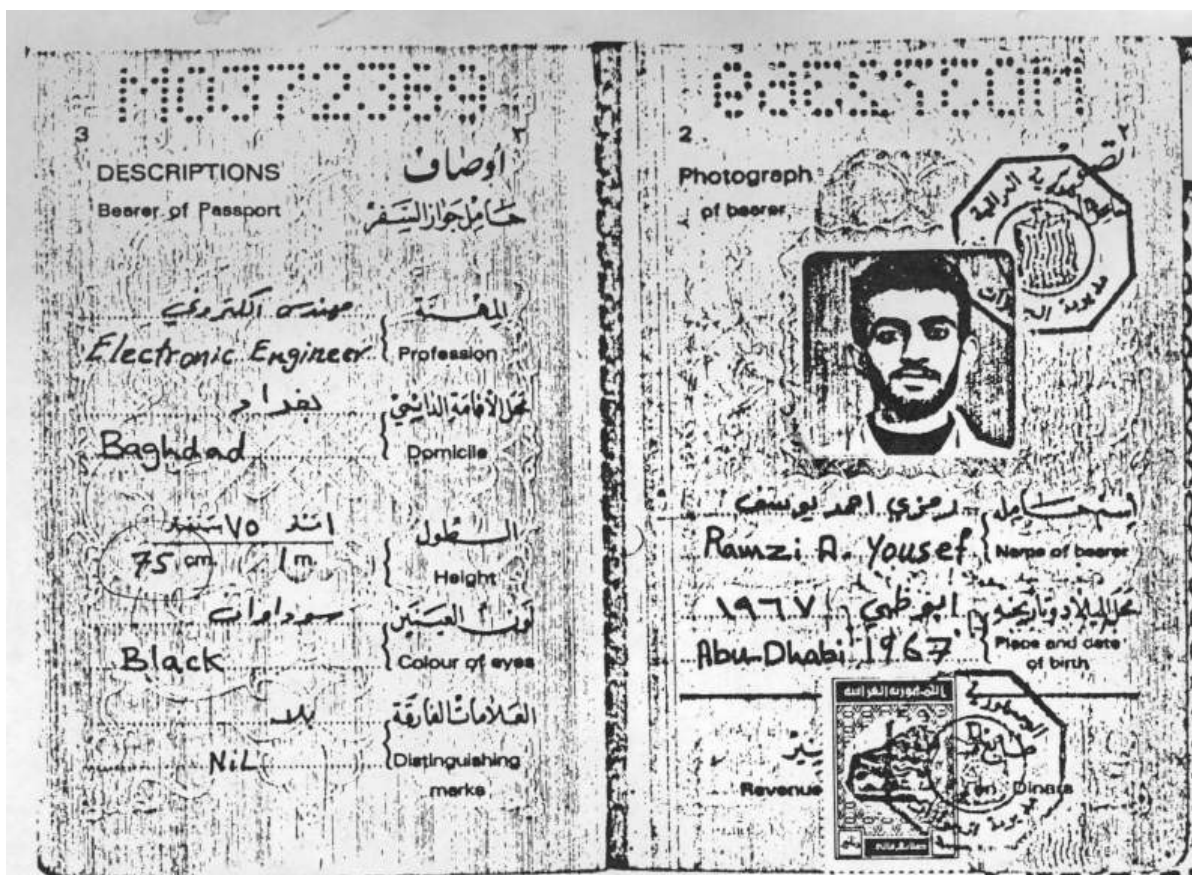 M0372369
3
٣
DESCRIPTIONS
أوصاف
Bearer of Passport
حَامِل جَواز السَّفَر
مهندس الكتروني
المِهْنَة
Electronic Engineer
Profession
بغداد
محَل الأقامَة الدَائِمِيْ
Baghdad
Domicile
٧٥ سنتم
75 cm. 1 m.
الطُول
Height
سوداوان
لَونُ العَيْنَين
Black
Colour of eyes
بلا
العَلامَاتُ الفَارِقَة
NiL
Distinguishing
marks
M0372369
2
٢
Photograph
of bearer
رمزي احمد يوسف
إسْم حَامِلِه
Ramzi A. Yousef
Name of bearer
ابو ظبي ١٩٦٧
محَل الميلاد وتاريخه
Abu-Dhabi 1967
Place and date
of birth
الجمهورية العراقية
Revenue
Ten Dinars